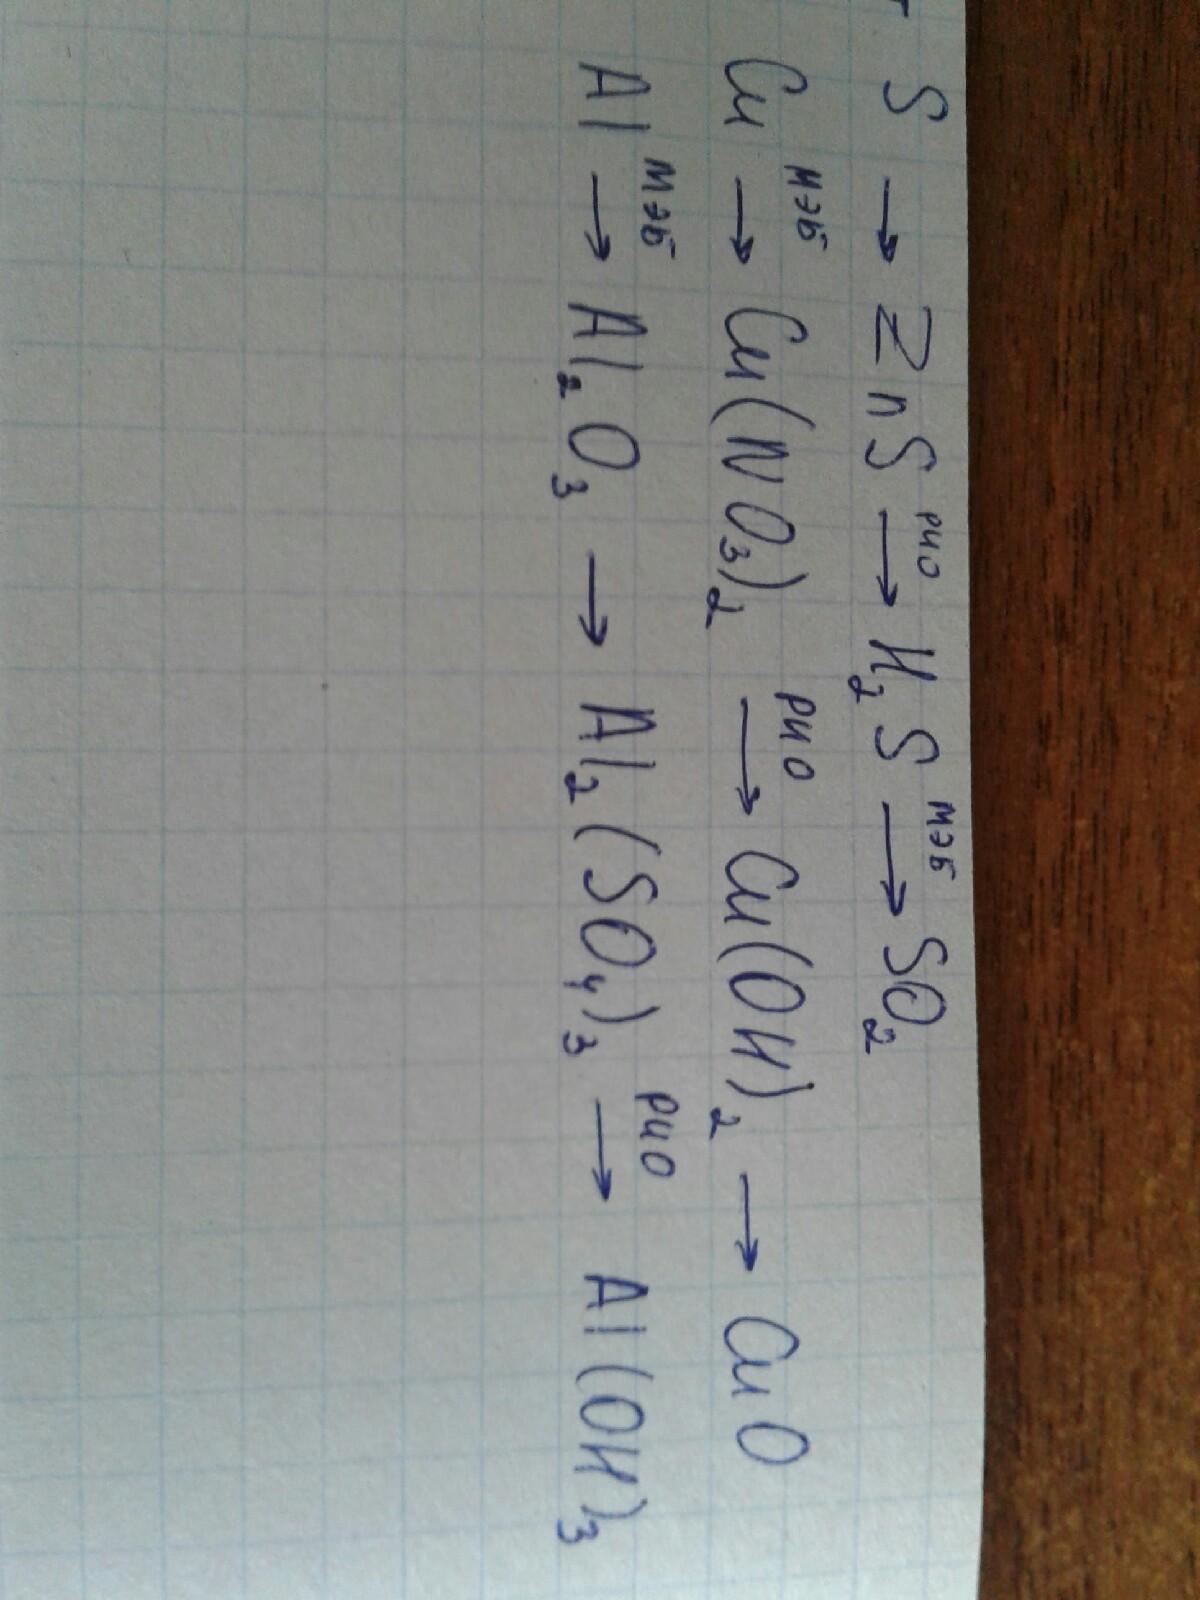 S → ZnS рио → H₂S мэб → SO₂
Cu мэб → Cu(NO₃)₂ рио → Cu(OH)₂ → CuO
Al мэб → Al₂O₃ → Al₂(SO₄)₃ рио → Al(OH)₃